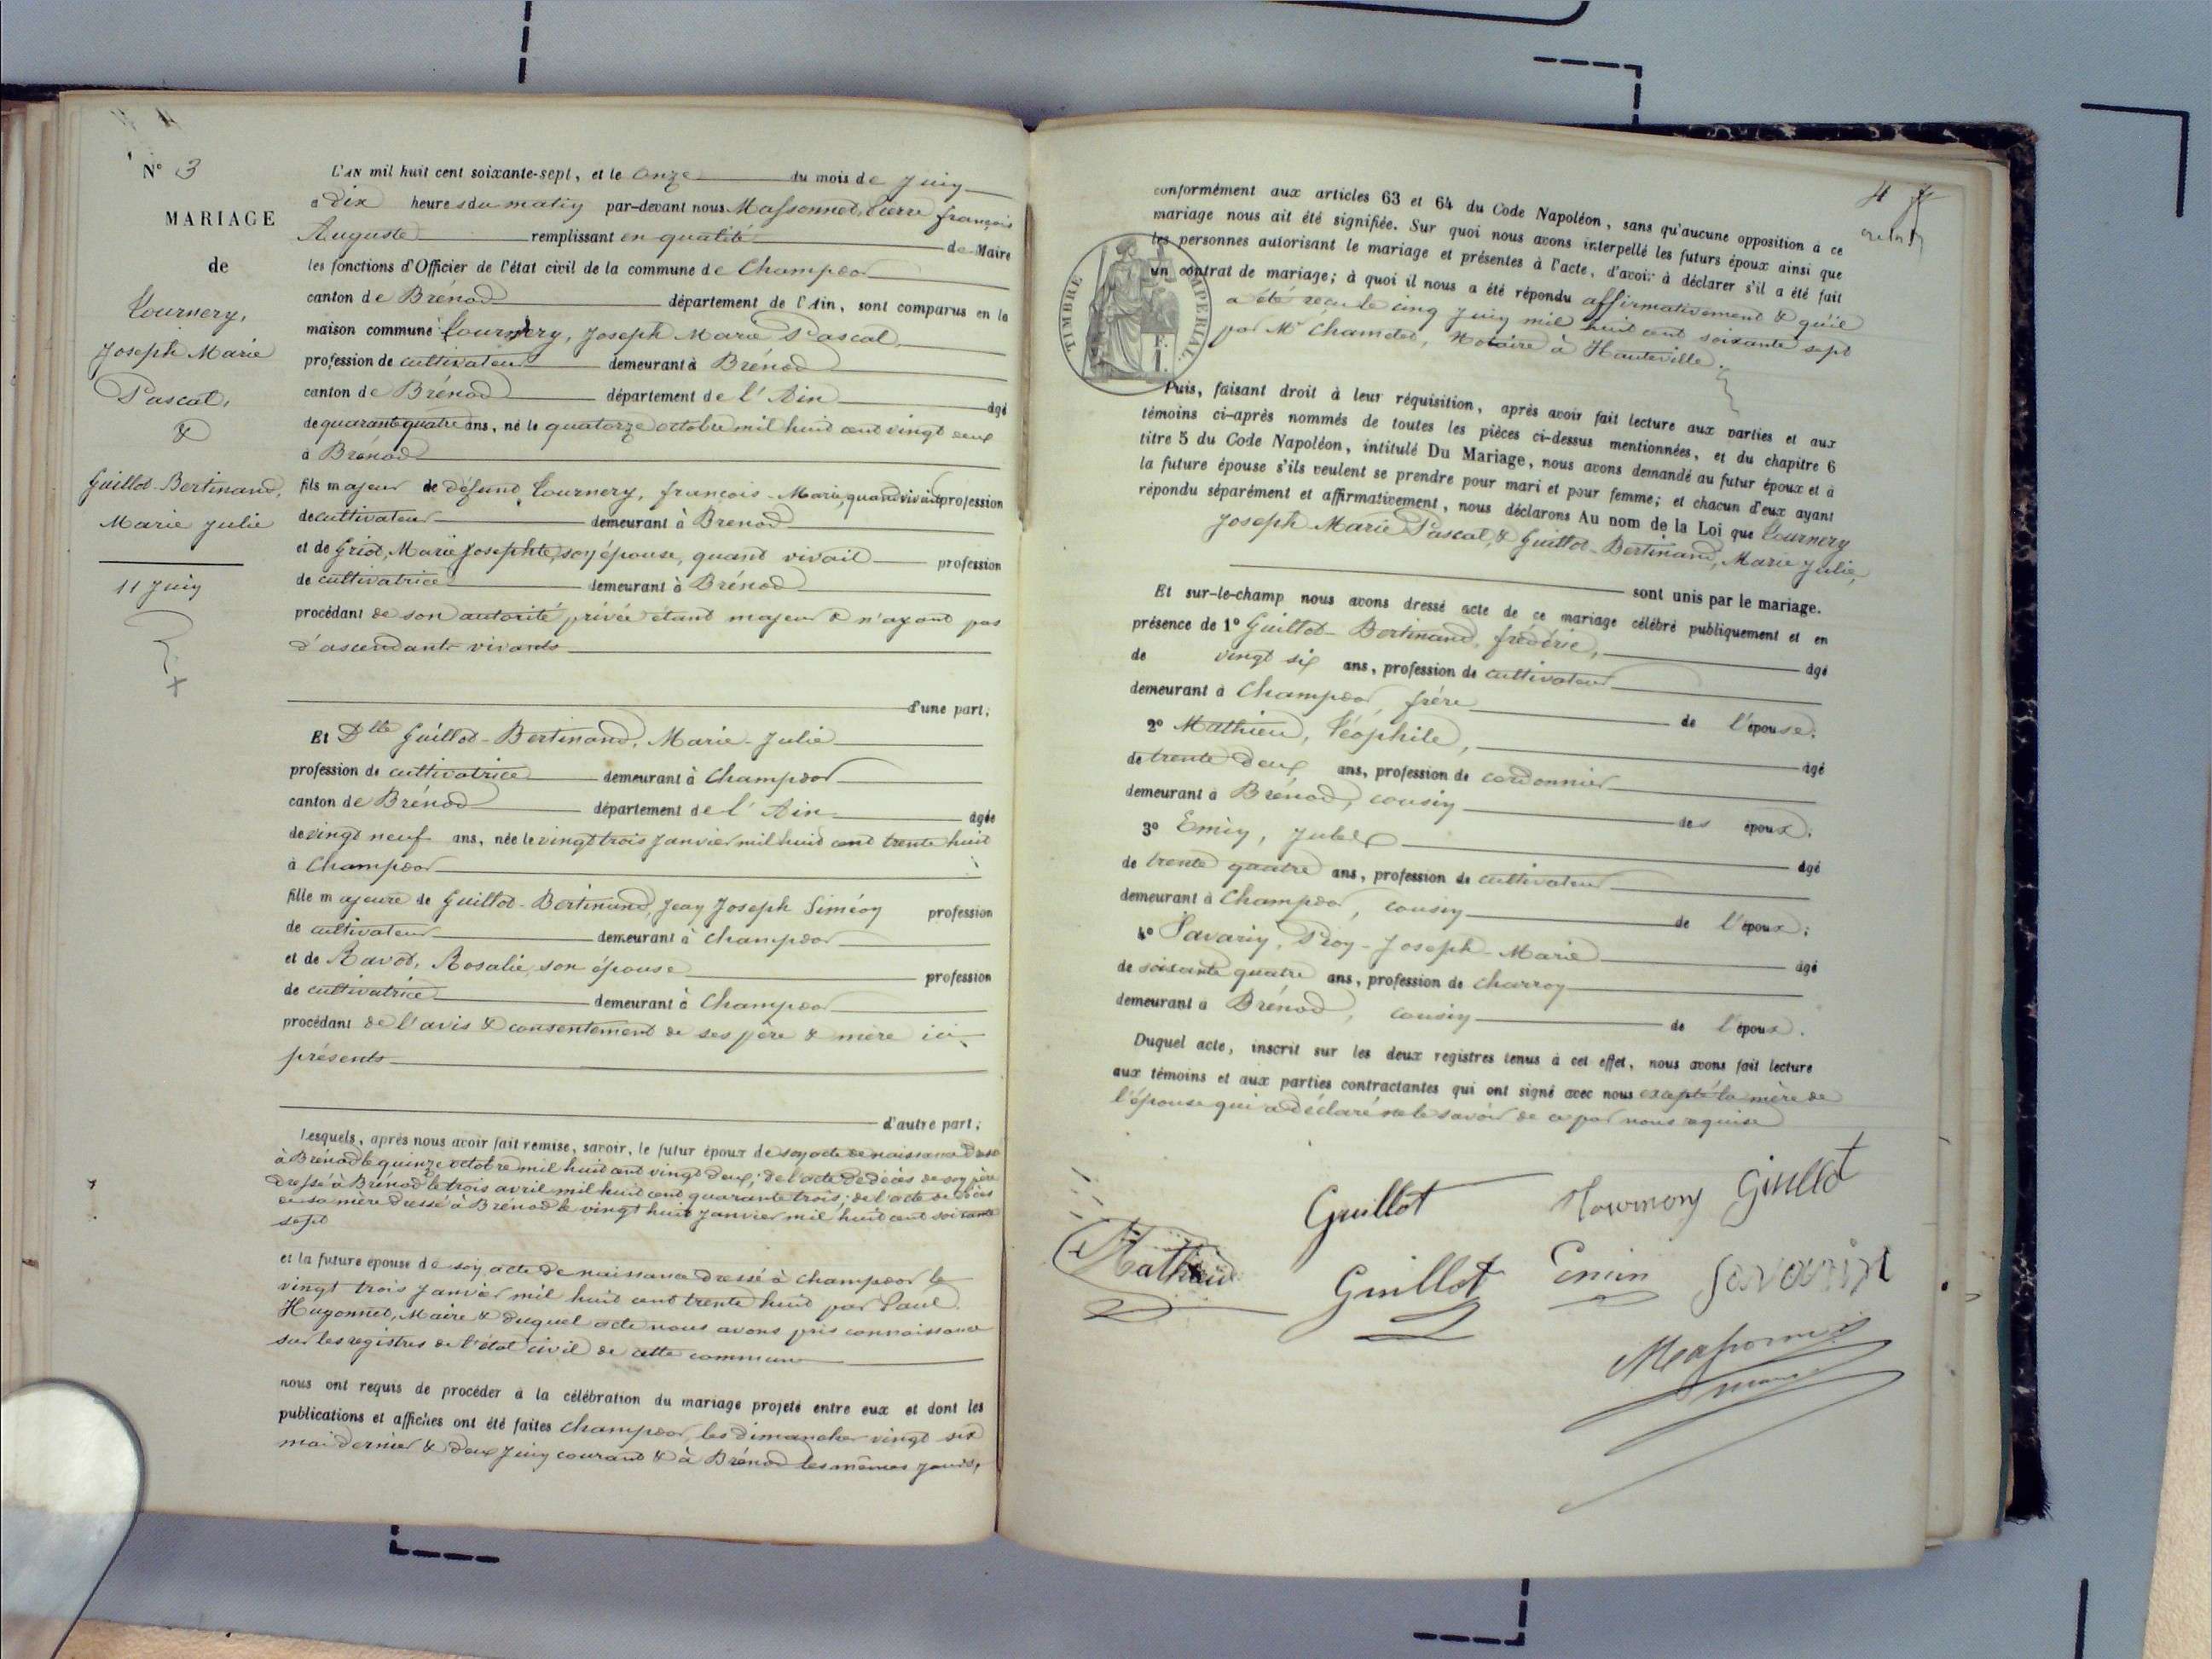 N° 3
MARIAGE
de
Tournery,
Joseph Marie
Pascal,
&
Guillot-Bertinand,
Marie Julie
11 Juin
L'AN mil huit cent soixante-sept, et le onze du mois de Juin
à Dix heures du matin par-devant nous Massonnet, Pierre françois
Auguste remplissant en qualité de Maire
les fonctions d'Officier de l'état civil de la commune de Champdor
canton de Brénod département de l'Ain, sont comparus en la
maison commune Tournery, Joseph Marie Pascal
profession de cultivateur demeurant à Brénod
canton de Brénod département de l'Ain âgé
de quarante quatre ans, né le quatorze octobre mil huit cent vingt deux
à Brénod
fils majeur de défunt Tournery, françois-Marie, quand vivait profession
de cultivateur demeurant à Brenod
et de Griot, Marie Josephte, son épouse, quand vivait profession
de cultivatrice demeurant à Brénod
procédant de son autorité privée étant majeur & n'ayant pas
d'ascendants vivants
d'une part;
Et Dlle Guillot-Bertinand, Marie-Julie
profession de cultivatrice demeurant à Champdor
canton de Brénod département de l'Ain âgée
de vingt neuf ans, née le vingt trois Janvier mil huit cent trente huit
à Champdor
fille majeure de Guillot-Bertinand, Jean Joseph Siméon profession
de cultivateur demeurant à Champdor
et de Ravot, Rosalie, son épouse profession
de cultivatrice demeurant à Champdor
procédant de l'avis & consentement de ses père & mère ici
présents
d'autre part;
Lesquels, après nous avoir fait remise, savoir, le futur époux de son acte de naissance dressé
à Brénod le quinze octobre mil huit cent vingt deux; de l'acte de décès de son père
dressé à Brénod le trois avril mil huit cent quarante trois; de l'acte de décès
de sa mère dressé à Brénod le vingt huit Janvier mil huit cent soixante
sept
et la future épouse de son acte de naissance dressé à Champdor le
vingt trois Janvier mil huit cent trente huit par Paul
Hugonnet, Maire & duquel acte nous avons pris connaissance
sur les registres de l'état civil de cette commune
nous ont requis de procéder à la célébration du mariage projeté entre eux et dont les
publications et affiches ont été faites Champdor, les dimanches vingt six
mai dernier & deux Juin courant & à Brénod les mêmes jours,
4
conformément aux articles 63 et 64 du Code Napoléon, sans qu'aucune opposition à ce
mariage nous ait été signifiée. Sur quoi nous avons interpellé les futurs époux ainsi que
les personnes autorisant le mariage et présentes à l'acte, d'avoir à déclarer s'il a été fait
un contrat de mariage; à quoi il nous a été répondu affirmativement & qu'il
a été reçu le cinq Juin mil huit cent soixante sept
par Mr Chamelot, Notaire à Hauteville.
TIMBRE IMPERIAL
1 F.
Puis, faisant droit à leur réquisition, après avoir fait lecture aux parties et aux
témoins ci-après nommés de toutes les pièces ci-dessus mentionnées, et du chapitre 6
titre 5 du Code Napoléon, intitulé Du Mariage, nous avons demandé au futur époux et à
la future épouse s'ils veulent se prendre pour mari et pour femme; et chacun d'eux ayant
répondu séparément et affirmativement, nous déclarons Au nom de la Loi que Tournery
Joseph Marie Pascal, & Guillot-Bertinand, Marie Julie,
sont unis par le mariage.
Et sur-le-champ nous avons dressé acte de ce mariage célébré publiquement et en
présence de 1° Guillot-Bertinand, frédéric, âgé
de vingt six ans, profession de cultivateur
demeurant à Champdor, frère de l'épouse.
2° Mathieu, Téophile, âgé
de trente deux ans, profession de cordonnier
demeurant à Brénod, cousin des époux;
3° Emin, Jules âgé
de trente quatre ans, profession de cultivateur
demeurant à Champdor, cousin de l'époux;
4° Savarin, Proy-Joseph-Marie âgé
de soixante quatre ans, profession de charron
demeurant à Brénod, cousin de l'époux.
Duquel acte, inscrit sur les deux registres tenus à cet effet, nous avons fait lecture
aux témoins et aux parties contractantes qui ont signé avec nous excepté la mère de
l'épouse qui a déclaré ne le savoir de ce par nous requise
Guillot Guillot
Mathieu Guillot Emin Savarin